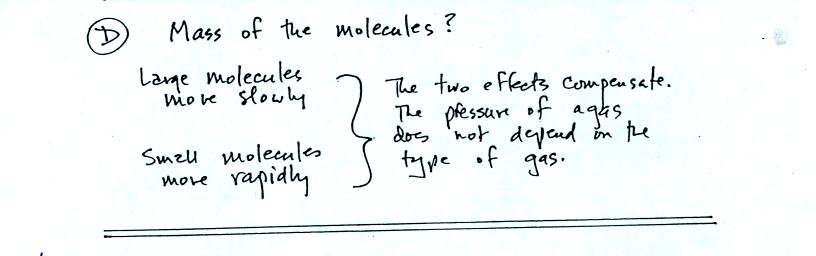 D Mass of the molecules?
Large molecules
move slowly
Small molecules
move rapidly
The two effects compensate.
The pressure of a gas
does not depend on the
type of gas.